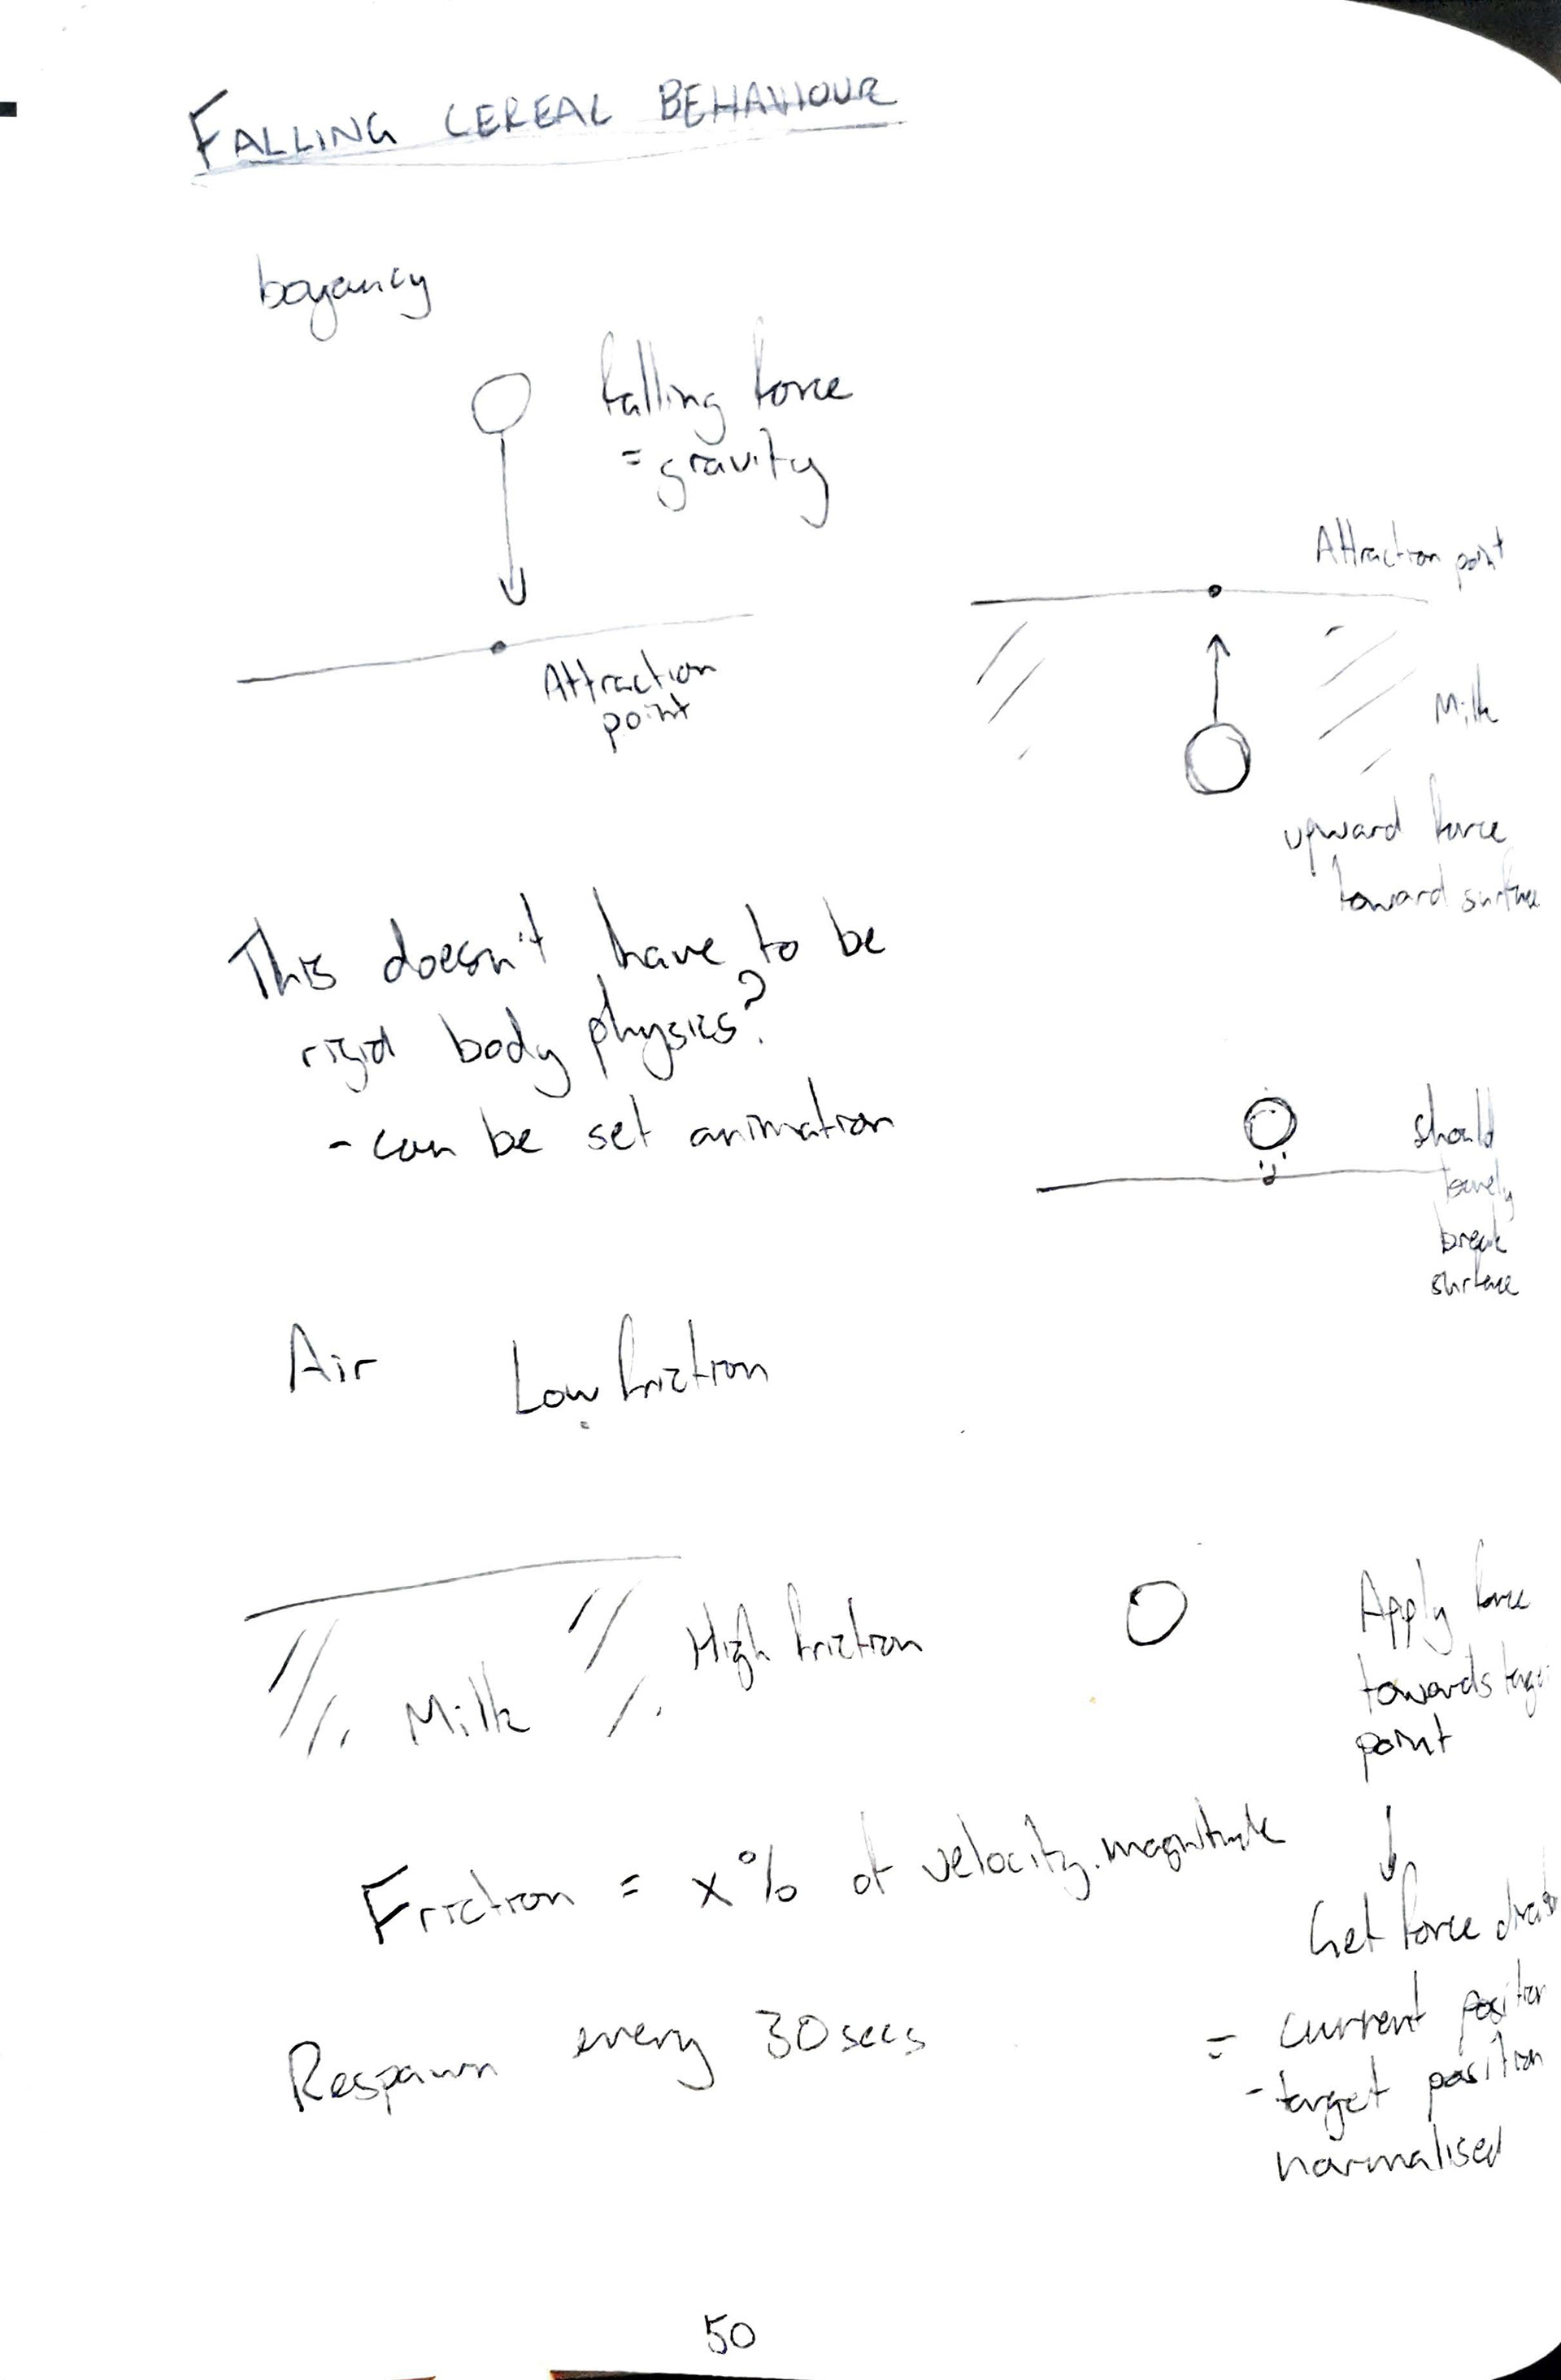 FALLING CEREAL BEHAVIOUR
boyancy
falling force
= gravity
Attraction
point
Attraction point
Milk
upward force
toward surface
This doesn't have to be
rigid body physics?
- can be set animation
should
barely
break
surface
Air Low friction
High friction
Milk
Apply force
towards
point
Friction = x% of velocity.magnitude
Get force
= current position
- target position
normalised
Respawn every 30secs
50